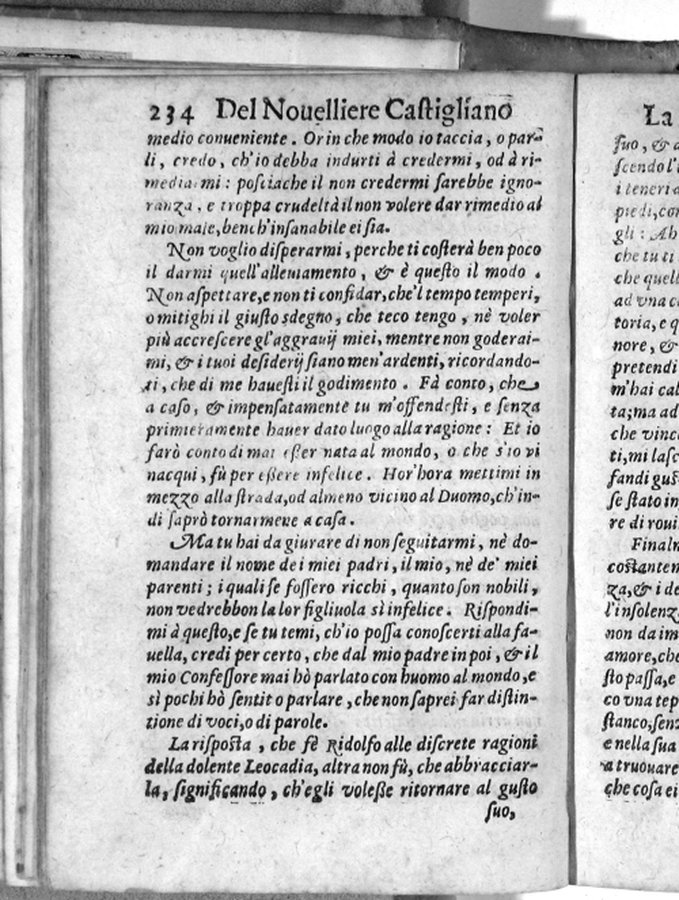 234 Del Nouelliere Castigliano
medio conueniente. Or in che modo io taccia, o par-
li, credo, ch'io debba indurti à credermi, od à ri-
mediarmi: posciache il non credermi sarebbe igno-
ranza, e troppa crudeltà il non volere dar rimedio al
mio male, bench'insanabile ei sia.
Non voglio disperarmi, perche ti costerà ben poco
il darmi quell'alleuiamento, & è questo il modo.
Non aspettare, e non ti confidar, che'l tempo temperi,
o mitighi il giusto sdegno, che teco tengo, nè voler
più accrescere gl'aggrauij miei, mentre non goderai-
mi, & i tuoi desiderij siano men'ardenti, ricordando-
ti, che di me hauesti il godimento. Fà conto, che
a caso, & impensatamente tu m'offendesti, e senza
primieramente hauer dato luogo alla ragione: Et io
farò conto di mai esser nata al mondo, o che s'io vi
nacqui, fù per essere infelice. Hor'hora mettimi in
mezzo alla strada, od almeno vicino al Duomo, ch'in-
di saprò tornarmene a casa.
Ma tu hai da giurare di non seguitarmi, nè do-
mandare il nome de i miei padri, il mio, nè de' miei
parenti; i quali se fossero ricchi, quanto son nobili,
non vedrebbon la lor figliuola sì infelice. Rispondi-
mi à questo, e se tu temi, ch'io possa conoscerti alla fa-
uella, credi per certo, che dal mio padre in poi, & il
mio Confessore mai hò parlato con huomo al mondo, e
sì pochi hò sentito parlare, che non saprei far distin-
tione di voci, o di parole.
La risposta, che fè Ridolfo alle discrete ragioni
della dolente Leocadia, altra non fù, che abbracciar-
la, significando, ch'egli volesse ritornare al gusto
suo,
La
suo, & a
scendo l'i
i teneri a
piedi, con
gli: Ah
che tu ti
che quell
ad vna c
toria, e q
nore, &
pretendi
m'hai cal
ta; ma ad
che vinc
ti, mi lasc
fandi gust
se stato in
re di roui
Finaln
costanten
za, & i de
l'insolenz
non da im
amore, che
sto passa, e
co vna tep
stanco, senz
e nella sua
a truouare
che cosa ei